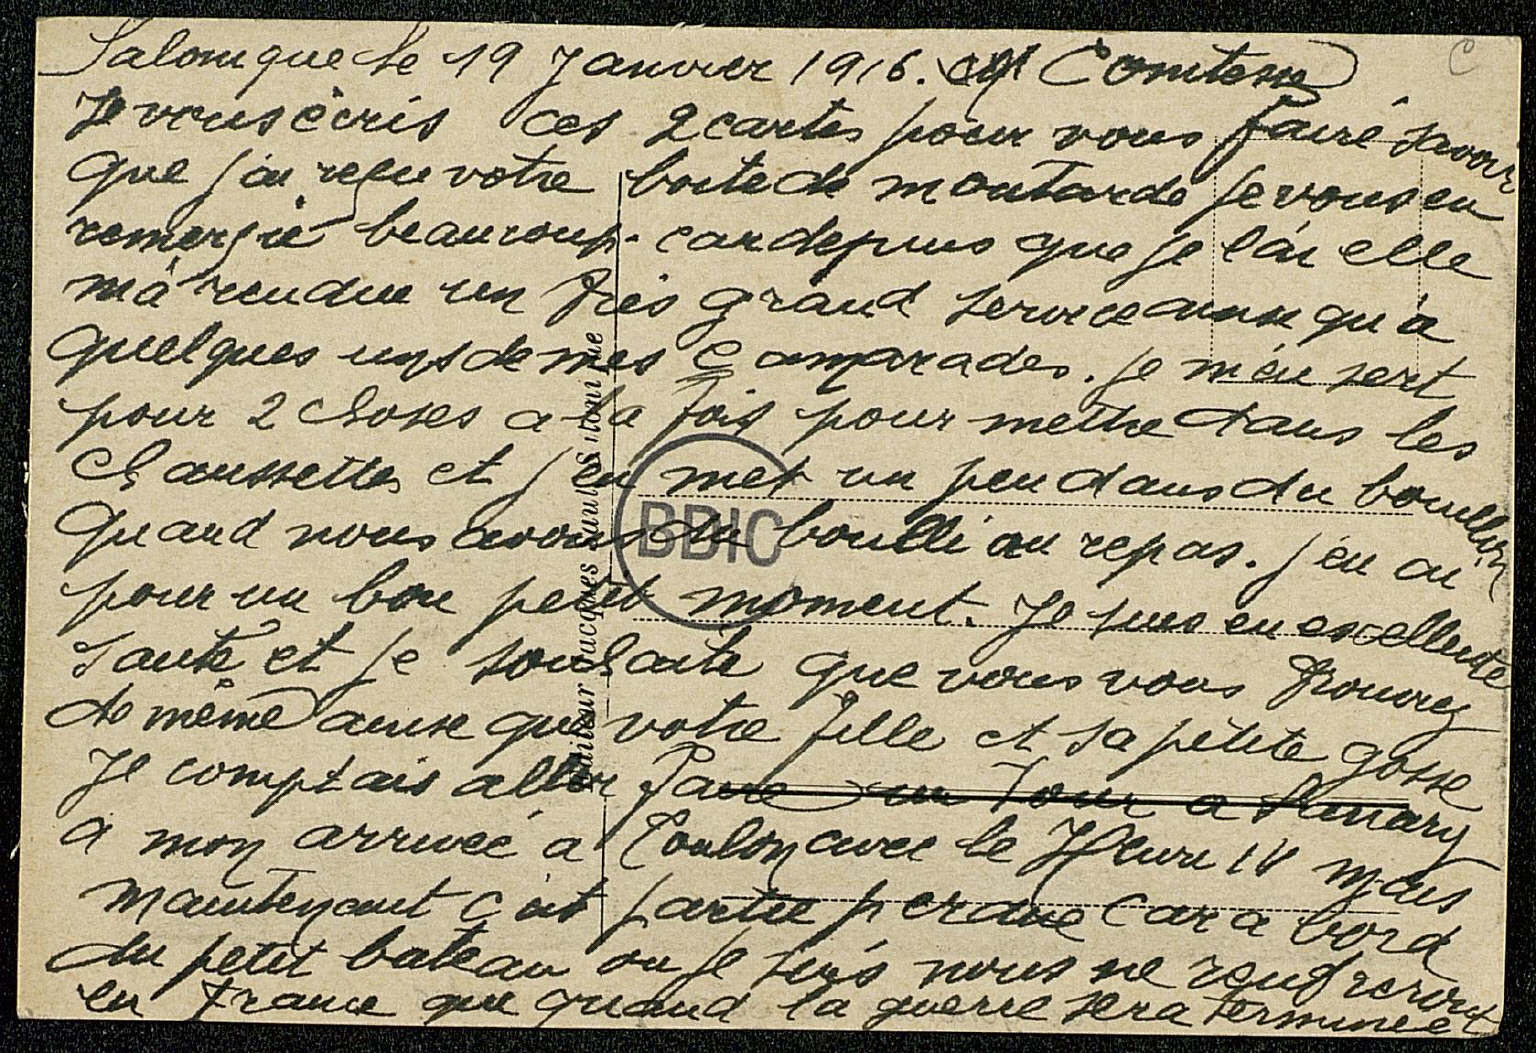 Salonique le 19 Janvier 1916. Comtesse
Je vous écris ces 2 cartes pour vous faire savoir
que j'ai reçu votre boite de moutarde je vous en
remerçie beaucoup. car depuis que je l'ai elle
m'à rendue un très grand service ainsi qu'à
quelques uns de mes Camarades. je m'en sert
pour 2 choses a la fois pour mettre dans les
chaussettes et j'en met un peu dans du bouillon
quand nous avons du boulli au repas. j'en ai
pour un bon petit moment. Je suis en excellente
santé et je souhaite que vous vous trouvez
de même ainsi que votre fille et sa pétite gosse
Je comptais aller faire un tour a Sanary
a mon arrivée à Toulon avec le Henri IV mais
maintenant c'est partie perdue car a bord
du petit bateau ou je suis nous ne rentrerons
en France que quand la guerre sera terminée
BDIC
Editeur Jacques Saul Salonique
C